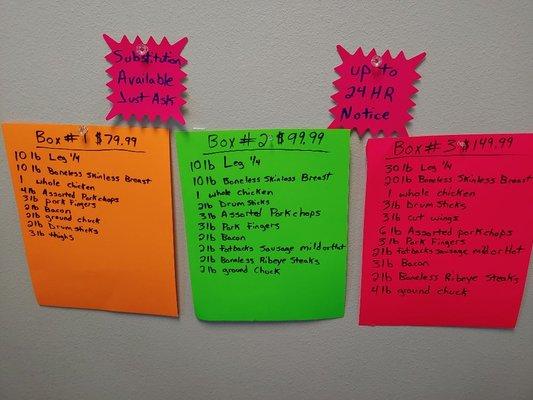 Substitution
Available
Just Ask
up to
24 HR
Notice
Box #1 $79.99
10 lb Leg 1/4
10 lb Boneless Skinless Breast
1 whole chicken
4 lb Assorted Porkchops
3 lb pork Fingers
2 lb Bacon
2 lb ground chuck
2 lb Drumsticks
3 lb thighs
Box #2 $99.99
10 lb Leg 1/4
10 lb Boneless Skinless Breast
1 whole Chicken
2 lb Drumsticks
3 lb Assorted Porkchops
3 lb Pork Fingers
2 lb Bacon
2 lb Fatbacks Sausage mild or Hot
2 lb Boneless Ribeye Steaks
2 lb ground Chuck
Box #3 $149.99
30 lb Leg 1/4
20 lb Boneless Skinless Breast
1 whole chicken
3 lb Drumsticks
3 lb cut wings
6 lb Assorted porkchops
3 lb Pork Fingers
2 lb fatbacks Sausage mild or Hot
3 lb Bacon
2 lb Boneless Ribeye Steaks
4 lb ground chuck